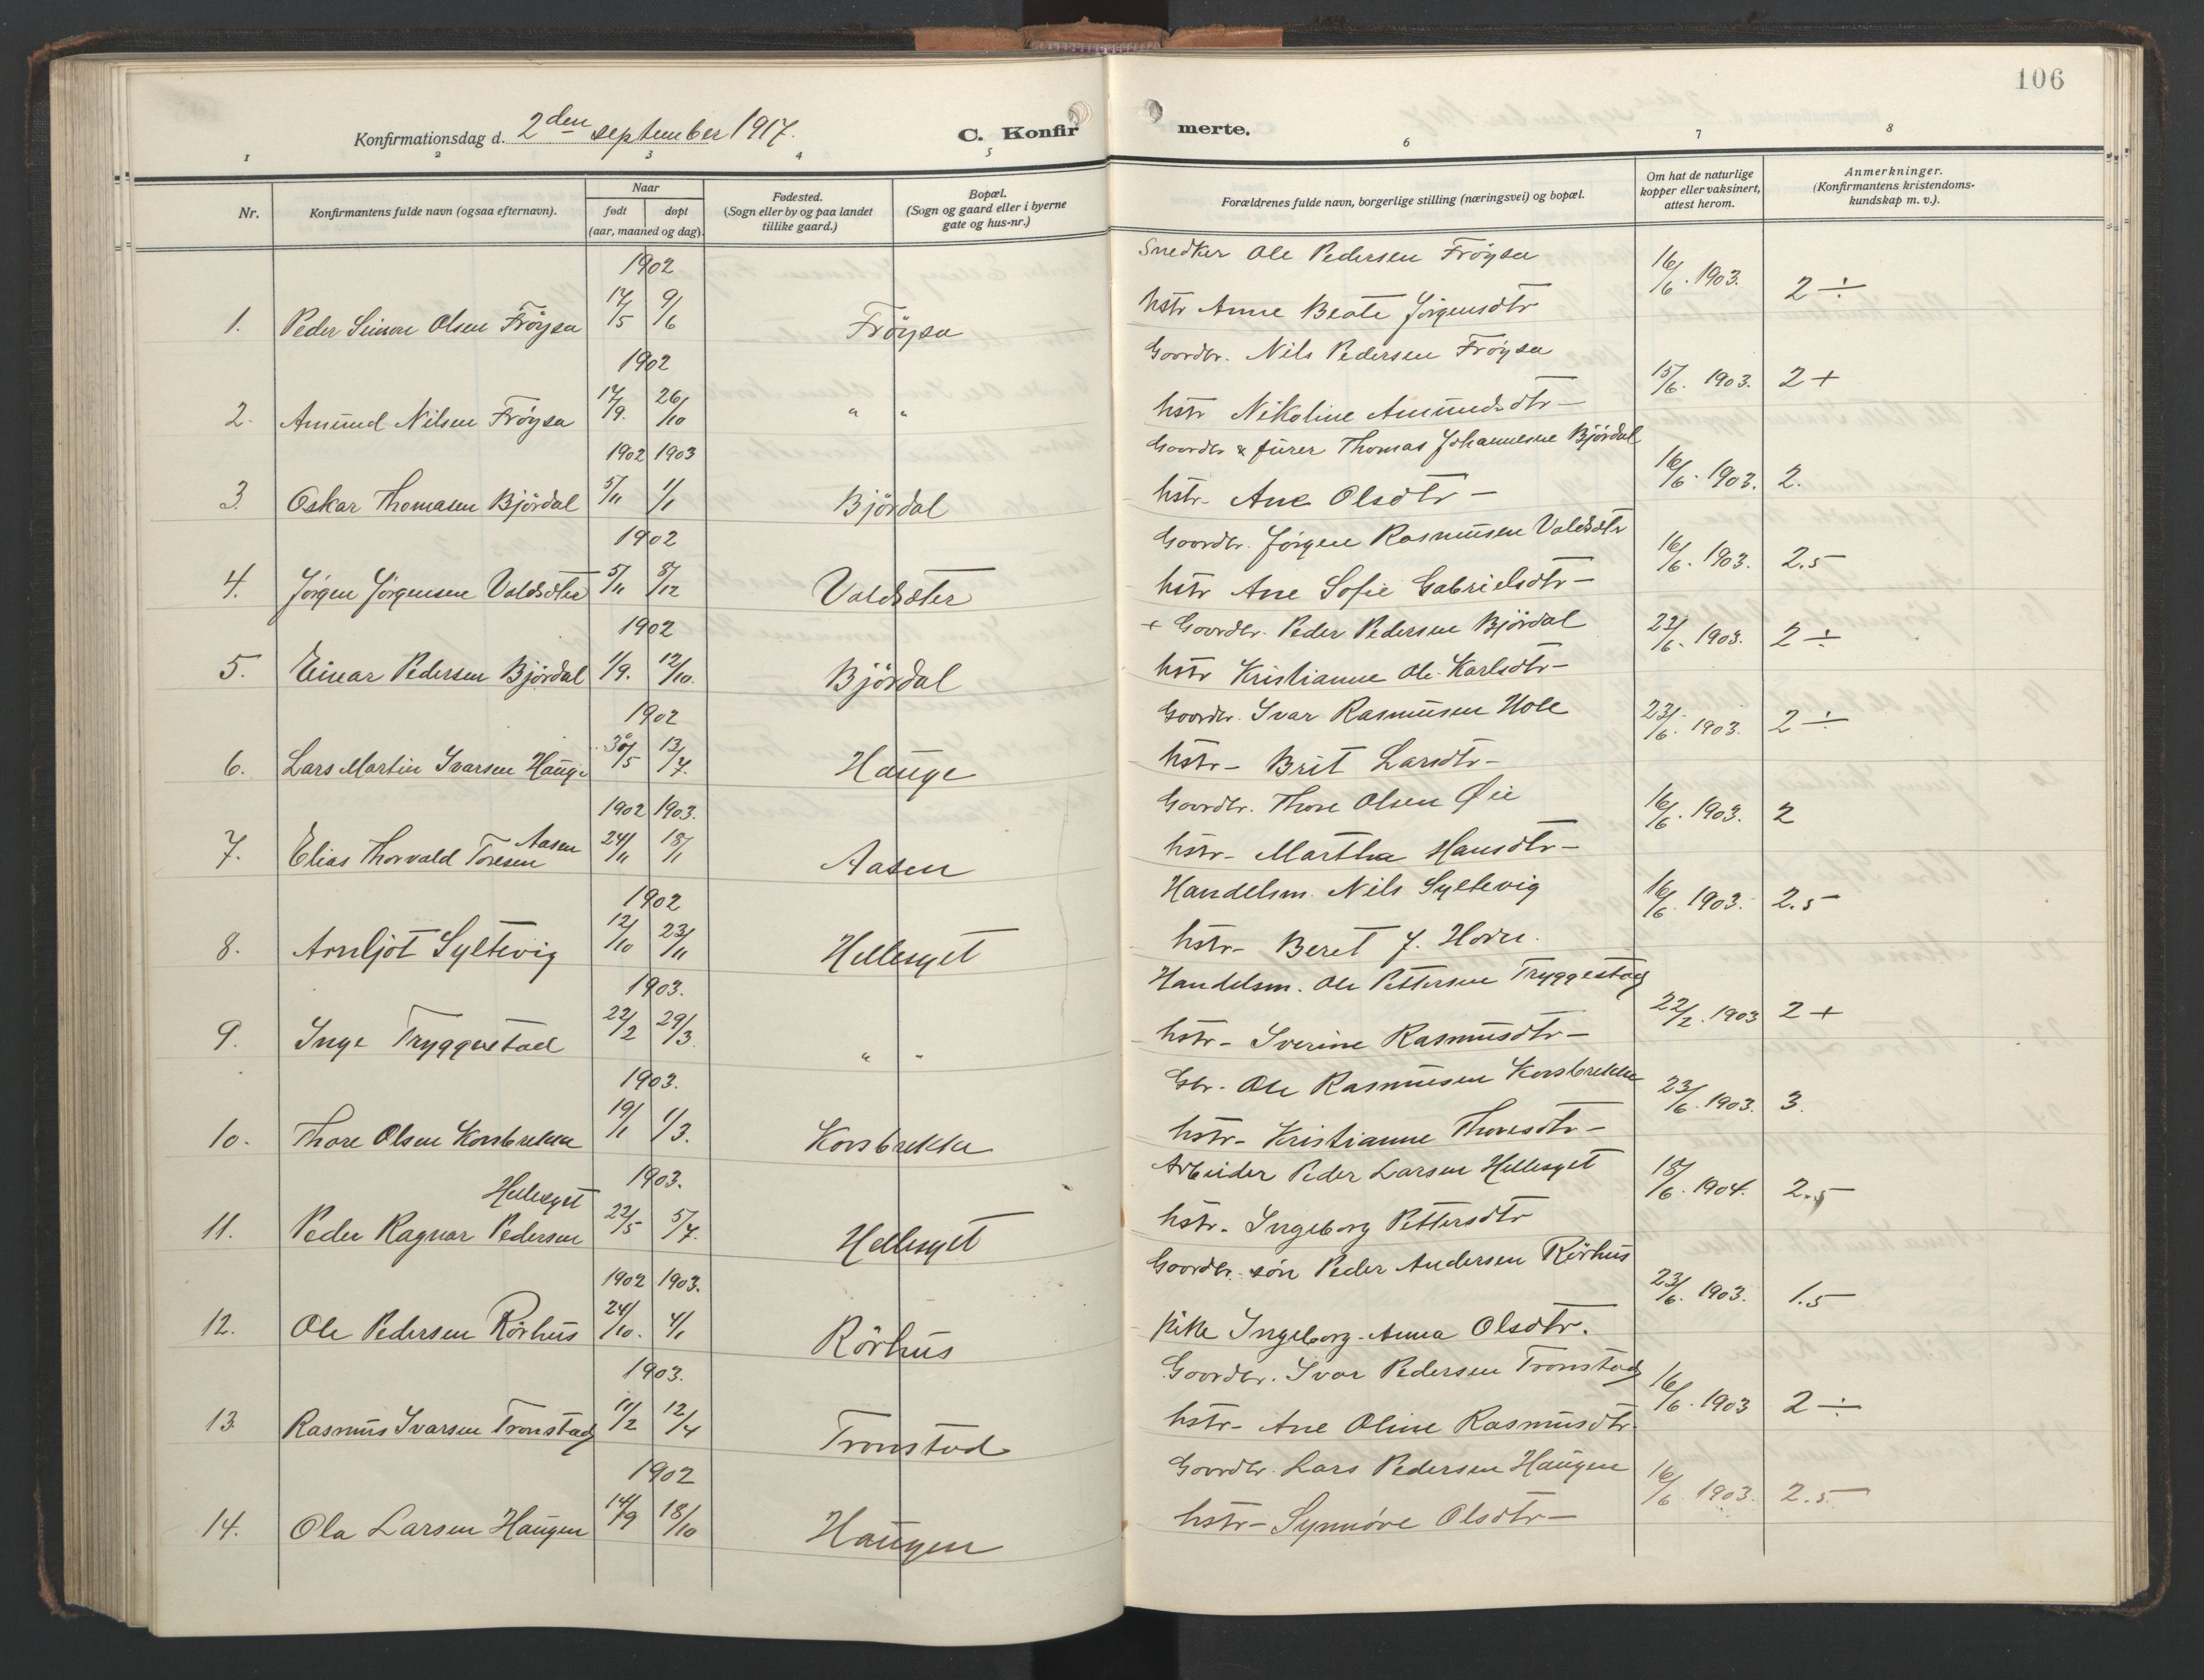 106
Konfirmationsdag d. 2den september 1917.
C. Konfirmerte.
1 2 3 4 5 6 7 8
Nr.
Konfirmantens fulde navn (ogsaa efternavn).
Naar
født døpt
(aar, maaned og dag).
Fødested.
(Sogn eller by og paa landet
tillike gaard.)
Bopæl.
(Sogn og gaard eller i byerne
gate og hus-nr.)
Forældrenes fulde navn, borgerlige stilling (næringsvei) og bopæl.
Om hat de naturlige
kopper eller vaksinert,
attest herom.
Anmerkninger.
(Konfirmantens kristendoms-
kundskap m. v.).
1902
1. Peder Simon Olsen Fröysa 17/5 9/6 Fröysa
Snedker Ole Pedersen Fröysa
hstr Anne Beate Jörgensdtr 16/6. 1903. 2 ÷
1902
2. Amund Nilsen Fröysa 17/9. 26/10 " "
Goordbr. Nils Pedersen Fröysa
hstr Nikoline Amundsdtr — 15/6. 1903. 2 +
1902 1903
3. Oskar Thomasen Björdal 5/11 1/1 Björdal
Goordbr & fürer Thomas Johannesen Björdal
hstr- Ane Olsdtr — 16/6. 1903. 2.
1902
4. Jörgen Jörgensen Valdsæter 5/11 8/12 Valdsæter
Goordbr. Jörgen Rasmusen Valdsætr
hstr Ane Sofie Gabrielsdtr — 16/6. 1903. 2.5
1902
5. Einar Pedersen Björdal 1/9. 12/10. Björdal
+ Goordbr. Peder Pedersen Björdal
hstr Kristianne Ole-Karlsdtr — 22/6. 1903. 2 ÷
1902
6. Lars Martin Ivarsen Hauge 30/5 13/7. Hauge
Goordbr. Ivar Rasmusen Hole
hstr- Brit Larsdtr — 23/6. 1903. 2 ÷
1902 1903.
Aasen
7. Elias Thorvald Toresen 24/11 18/1 Aasen
Goordbr. Thore Olsen Øie
hstr- Martha Hansdtr — 16/6. 1903. 2
1902
8. Arnljot Syltevig 12/10 23/11 Hellesyet
Handelsm. Nils Syltevig
hstr- Beret J. Hovde. 16/6. 1903. 2.5
1903.
9. Inge Tryggestad 22/2 29/3. " "
Handelsm. Ole Pettersen Tryggestad
hstr- Iverine Rasmusdtr — 22/2. 1903 2 +
1903.
10. Thore Olsen Korsbrekke 19/1 1/3. Korsbrekke
Gbr. Ole Rasmusen Korsbrekke
hstr- Kristianne Thoresdtr — 23/6. 1903. 3.
1903.
Hellesyet
11. Peder Ragnar Pedersen 22/5 5/7. Hellesyet
Arbeider Peder Larsen Hellesyet
hstr- Ingeborg Pettersdtr 18/6. 1904. 2.5
1902 1903.
12. Ole Pedersen Rörhus 24/10. 4/1 Rörhus
Goordbr. sön Peder Andersen Rörhus
Pike Ingeborg-Anna Olsdtr. 23/6. 1903. 1.5
1903.
13. Rasmus Ivarsen Tronstad 11/2 12/4 Tronstad
Goordbr. Ivar Pedersen Tronstad
hstr- Ane Oline Rasmusdtr. 16/6. 1903 2 ÷
1902
14. Ola Larsen Haugen 14/9 18/10 Haugen
Goordbr. Lars Pedersen Haugen
hstr- Synnöve Olsdtr — 16/6 1903. 2.5